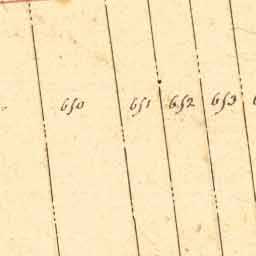 650 651 652 653